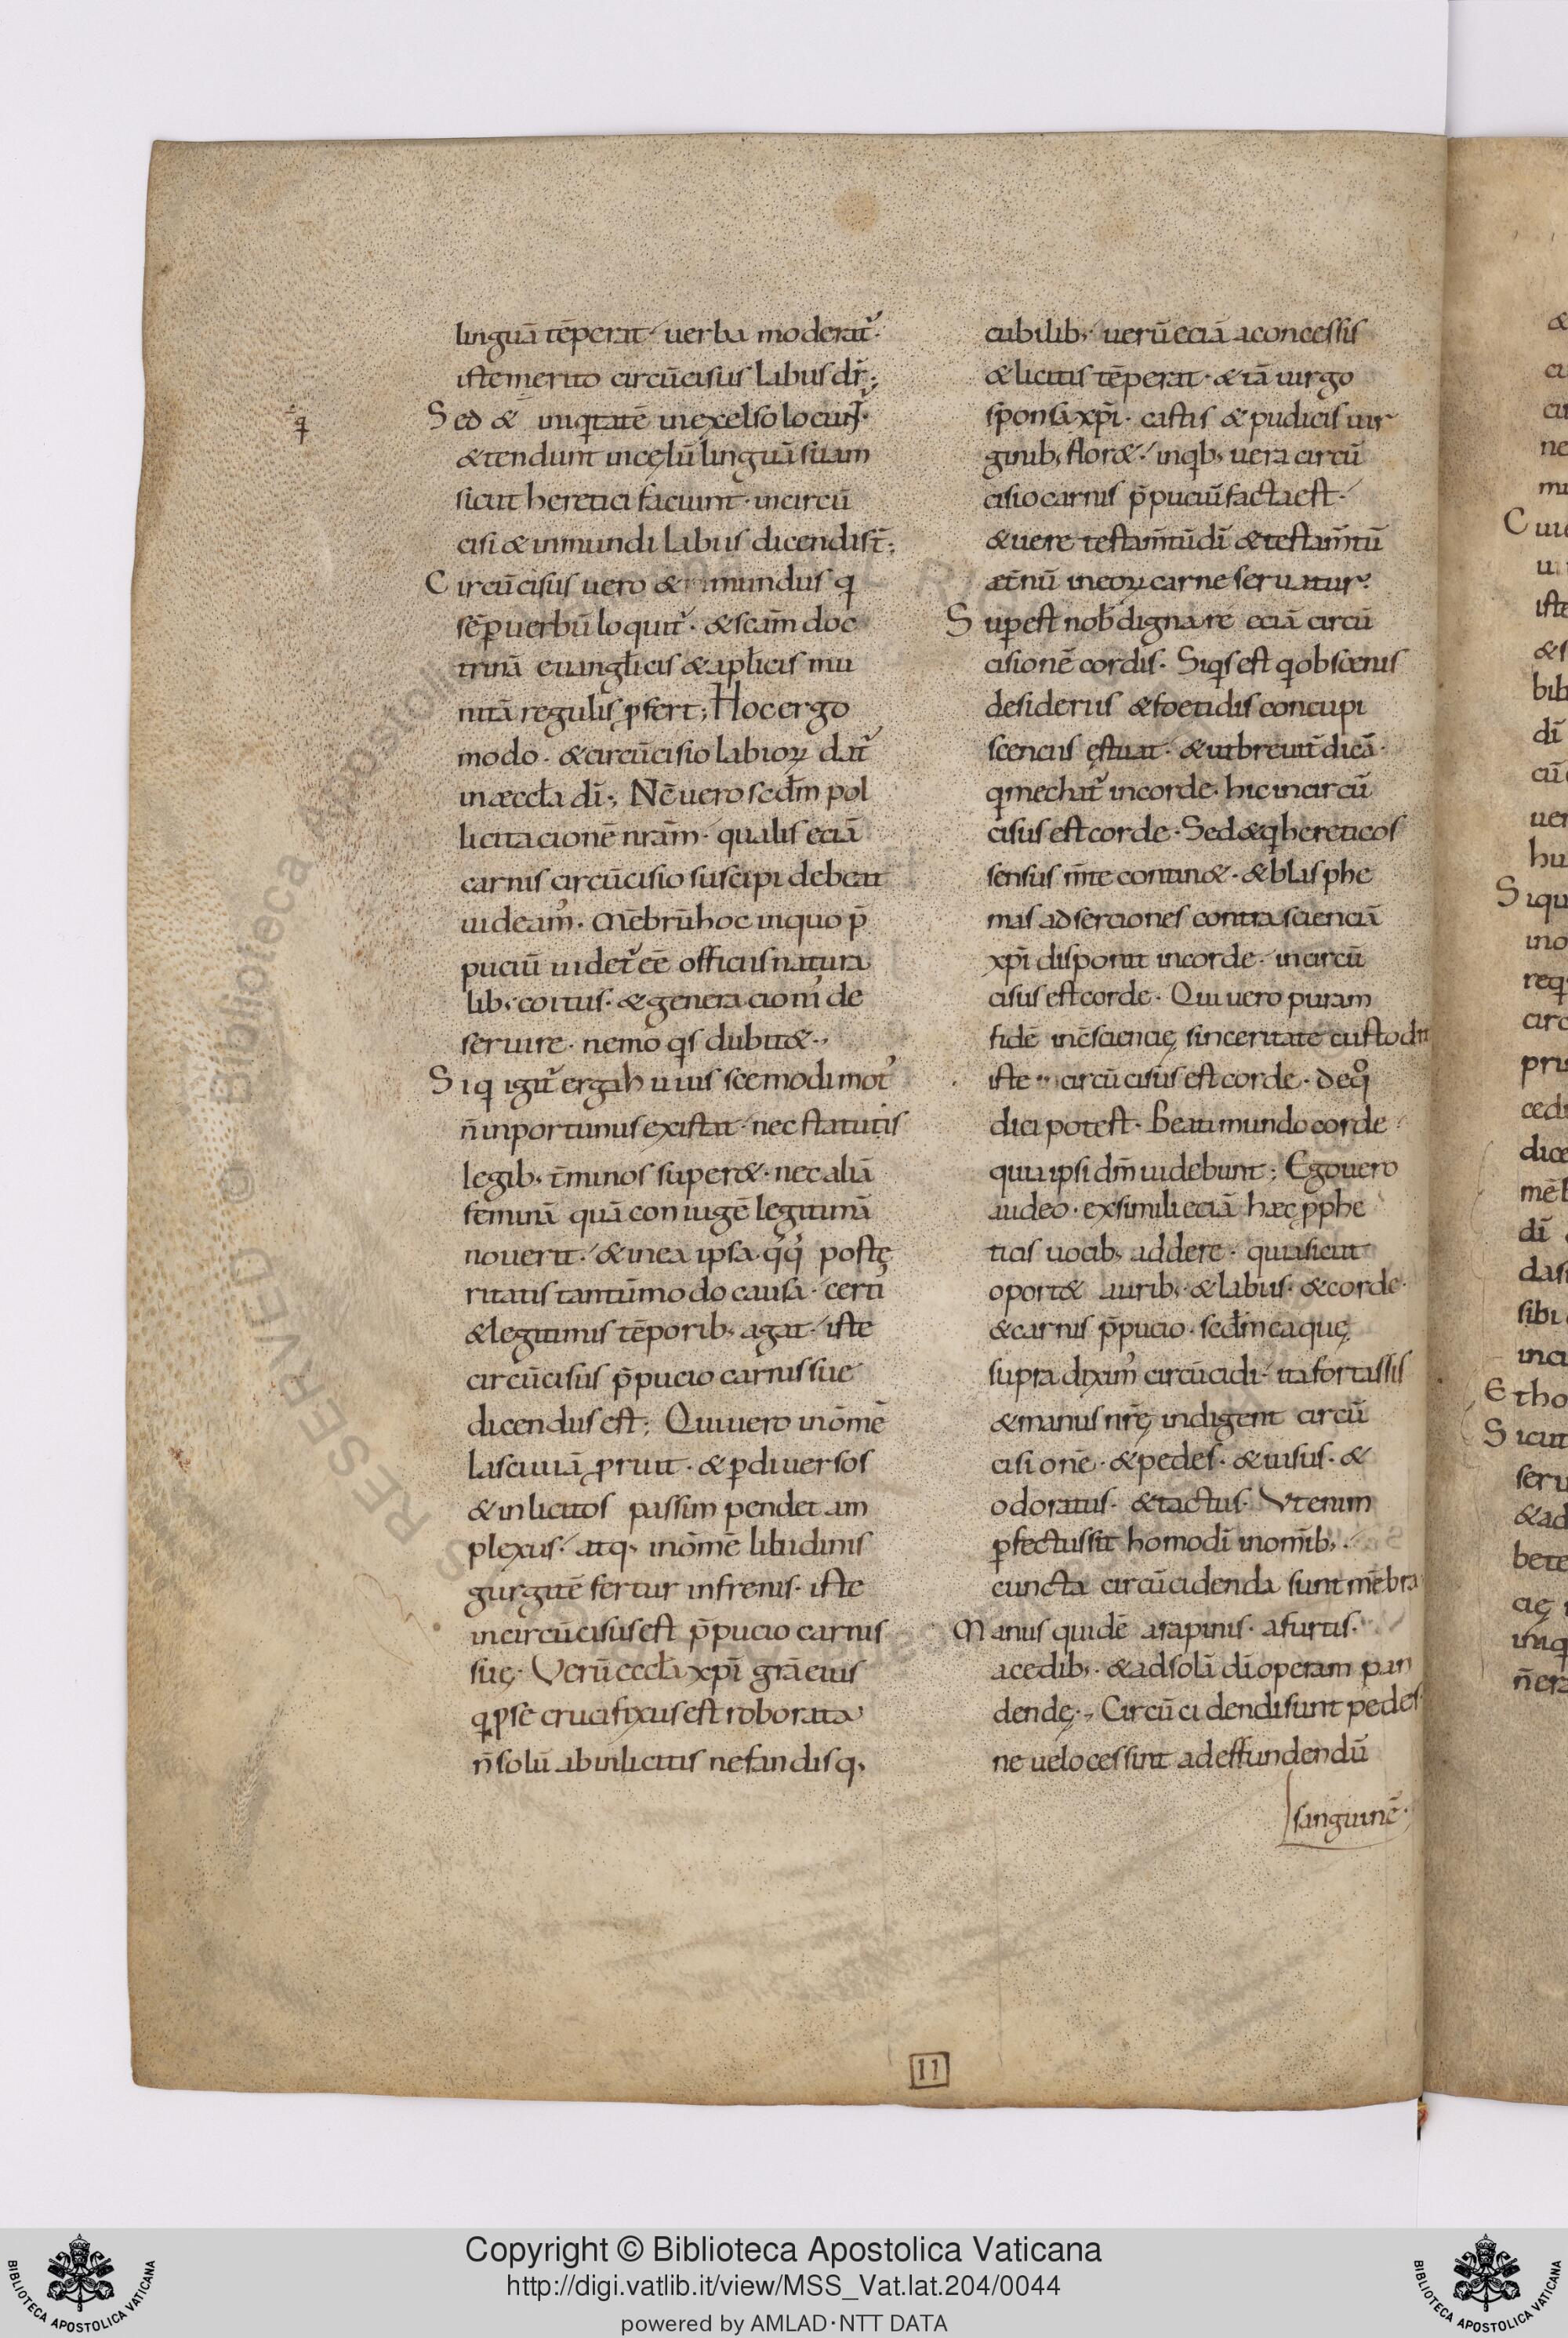 linguā tēperat· uerba moderat᷑·
iste merito circūcisus labiis dr̄;
Sed & iniq̄tatē in excelso locunt᷑·
& tendunt in cęlū linguā suam
sicut heretici faciunt· in circū
cisi & inmundi labiis dicendi sт̄;
Circūcisus uero & mundus q
sēꝑ uerbū loquit᷑· & scām doc
trinā euangl̄icis & apl̄icis mu
nitā regulis ꝓfert; Hoc ergo
modo· & circūcisio labioꝝ dat᷑
in æccl̄a dī; Nc̄ uero scd̄m pol
licitacionē nrām· qualis eciā
carnis circūcisio suscipi debeat
uideam᷒· Mēbrū hoc in quo p̄
puciū uidet᷑ eē officiis natura
lib; coitus· & generacionū de
seruire· nemo qͥs dubit&·,
Si q igit᷑ erga huiusce modi mot᷒
n̄ inportunus existat· nec statutis
legib; t̄minos super&· nec aliā
feminā quā coniugē legitimā
nouerit· & in ea ipsa qͦqͦ postę
ritatis tantūmodo causa· certi
& legitimis tēporib; agat· iste
circūcisus p̄pucio carnis sue
dicendus est; Qui uero in ōmē
lasciuiā ꝓruit· & ꝑ diuersos
& inlicitos passim pendet am
plexus· atq; in ōmē libidinis
gurgitē fertur infrenis· iste
incircūcisus est p̄pucio carnis
suę· Verū eccl̄a xp̄i grā eius
q ꝓ se crucifixus est roborata
n̄ solū ab inlicitis nefandisq;
cubilib; uerū eciā a concessis
& licitis tēperat· & tā uirgo
sponsa xp̄i· castis & pudicis uir
ginib; flor&· in qͥb; uera circū
cisio carnis p̄puciī facta est·
& uere testam̄tū dī & testam̄tū
æt̄nū in eoꝝ carne seruatur·
Supest nob̄ dignare eciā circū
cisionē cordis· Siqͥs est q obscenis
desideriis & foetidis concupi
scenciis ęstuat· & ut breuit̄ dicā·
q mechat᷑ in corde· hic incircū
cisus est corde· Sed & q hereticos
sensus m̄te contin&· & blasphe
mas adserciones contra scienciā
xp̄i disponit in corde· incircū
cisus est corde· Qui uero puram
fidē in c̄sciencię sinceritate custodit
iste circūcisus est corde· de qͦ
dici potest· Beati mundo corde
quia ipsi dm̄ uidebunt; Ego uero
audeo· ex simili eciā hæc ꝓphe
ticis uocib; addere· quia sicut
oport& aurib;· & labiis· & corde·
& carnis p̄pucio· scd̄m ea quę
supra dixim᷒ circūcidi· ita fortassis
& manus nr̄ę indigent circū
cisionē· & pedes· & uisus· &
odoratus· & tactus· Vt enim
ꝑfectus sit homo dī in omīb;·
cuncta circūcidenda sunt mēbra
Manus quidē a rapinis· a furtis·
a cedib;· & ad sola dī operam pan
dendę·, Circūcidendi sunt pedes
ne ueloces sint ad effundendū
sanguinē·
11
Copyright © Biblioteca Apostolica Vaticana
http://digi.vatlib.it/view/MSS_Vat.lat.204/0044
powered by AMLAD·NTT DATA